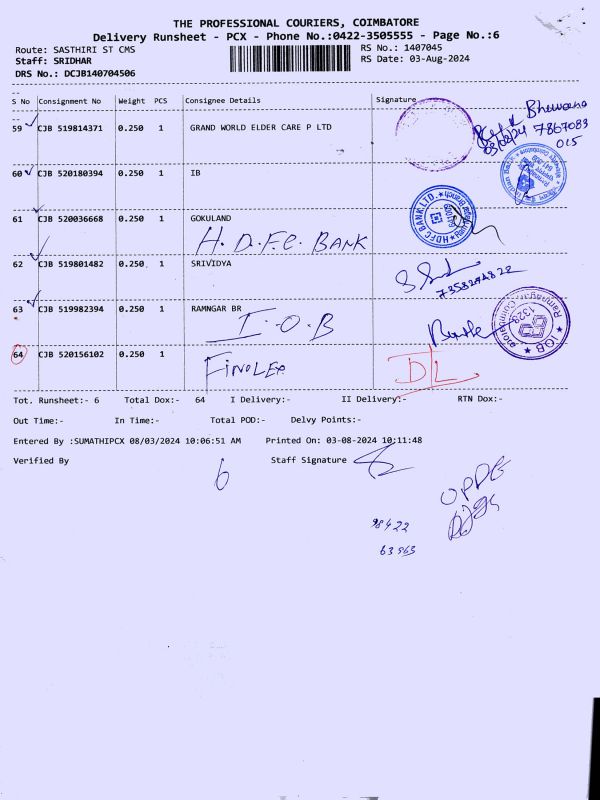 THE PROFESSIONAL COURIERS, COIMBATORE
Delivery Runsheet - PCX - Phone No.:0422-3505555 - Page No.:6
Route: SASTHIRI ST CMS
RS No.: 1407045
Staff: SRIDHAR
RS Date: 03-Aug-2024
DRS No.: DCJB140704506
S No Consignment No Weight PCS Consignee Details Signature
59 CJB 519814371 0.250 1 GRAND WORLD ELDER CARE P LTD
Bhuvana
03/08/24 7867083
015
60 CJB 520180394 0.250 1 IB
61 CJB 520036668 0.250 1 GOKULAND
H.D.F.C. BANK
HDFC BANK LTD.
62 CJB 519801482 0.250 1 SRIVIDYA
63 CJB 519982394 0.250 1 RAMNGAR BR
I.O.B
IOB
1329
64 CJB 520156102 0.250 1
FINOLEX
D/L
Tot. Runsheet:- 6 Total Dox:- 64 I Delivery:- II Delivery:- RTN Dox:-
Out Time:- In Time:- Total POD:- Delvy Points:-
Entered By :SUMATHIPCX 08/03/2024 10:06:51 AM Printed On: 03-08-2024 10:11:48
Verified By Staff Signature
6
98422
63563